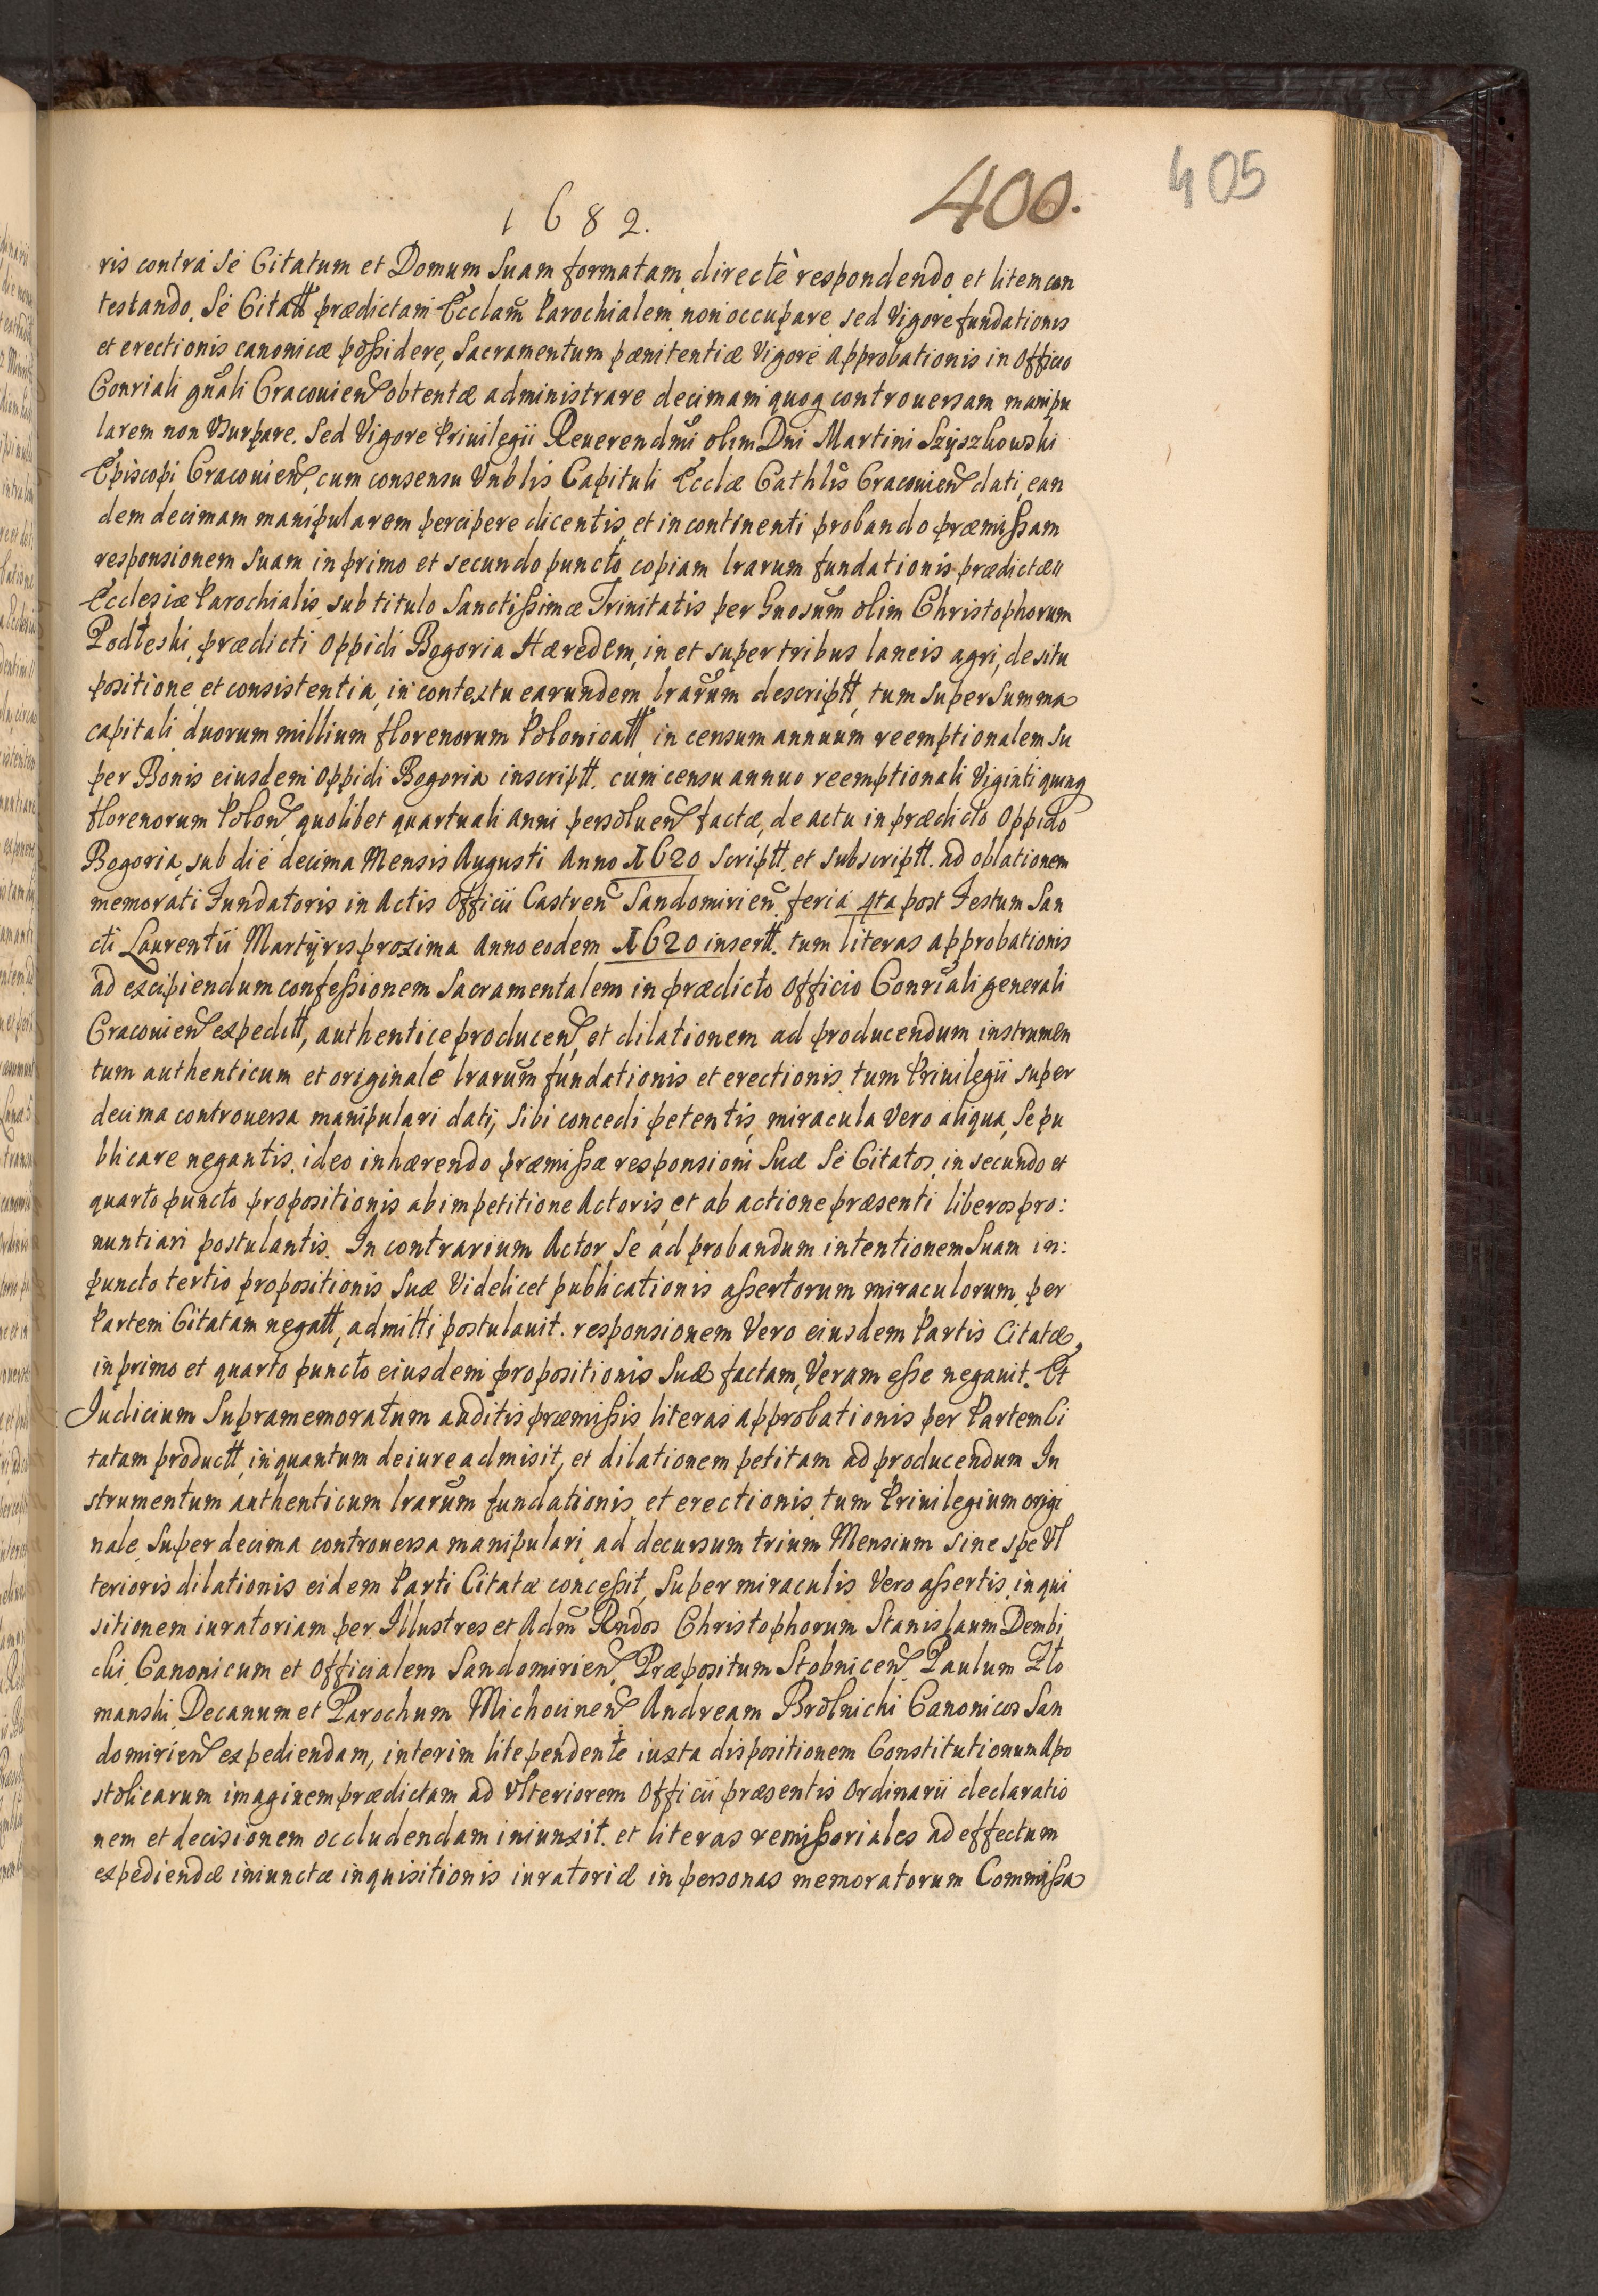 1682.
400.
405
ris contra Se Citatum et Domum Suam formatam, directè respondendo et litem con
testando. Se Citatt prædictam Ecclam Parochialem non occupare sed Vigore fundationis
et erectionis canonicæ poßidere, Sacramentum pænitentiæ Vigore Approbationis in Officio
Conriali gnali Cracouien obtentæ administrare decimam quoq controuersam manipu
larem non Vsurpare. Sed Vigore Priuilegii Reuerendmi olim Dni Martini Szyszkowski
Episcopi Cracouien, cum consensu Vnblis Capituli Eccliæ Cathlis Cracouien dati, ean
dem decimam manipularem percipere dicentis, et in continenti probando præmißam
responsionem Suam in primo et secundo puncto, copiam lrarum fundationis prædictæ
Ecclesiæ Parochialis sub titulo Sanctißimæ Trinitatis per Gnosum olim Christophorum
Podłeski, prædicti Oppidi Bogoria Hæredem, in et super tribus laneis agri, de situ
positione et consistentia, in contextu earundem lrarum descriptt, tum super Summa
capitali duorum millium florenorum Polonicatt, in censum annuum reemptionalem Su
per Bonis eiusdem Oppidi Bogoria inscriptt. cum censu annuo reemptionali Viginti quinq
florenorum Polon, quolibet quartuali anni persoluen factæ, de actu in prædicto Oppido
Bogoria, sub die decima Mensis Augusti Anno 1620 Scriptt. et Subscriptt. ad oblationem
memorati Fundatoris in Actis Officii Castren Sandomirien. feria 4ta post Festum San
cti Laurentii Martyris proxima Anno eodem 1620 insertt. tum literas approbationis
ad excipiendum confeßionem Sacramentalem in prædicto Officio Conriali generali
Cracouien expeditt, authentice producen, et dilationem ad producendum instrumen
tum authenticum et originale lrarum fundationis et erectionis tum Priuilegii super
decima controuersa manipulari dati, Sibi concedi petentis, miracula Vero aliqua, Se pu
blicare negantis. ideo inhærendo præmißæ responsioni Suæ Se Citatos in secundo et
quarto puncto propositionis ab impetitione Actoris, et ab actione præsenti liberos pro:
nuntiari postulantis. In contrarium Actor Se ad probandum intentionem Suam in:
puncto tertio propositionis Suæ Videlicet publicationis aßertorum miraculorum, per
Partem Citatam negatt, admitti postulauit. responsionem Vero eiusdem Partis Citatæ,
in primo et quarto puncto eiusdem propositionis Suæ factam, Veram eße negauit. Et
Iudicium Supramemoratum auditis præmißis literas approbationis per Partem Ci
tatam productt, in quantum de iure admisit, et dilationem petitam ad producendum In
strumentum authenticum lrarum fundationis et erectionis tum Priuilegium origi
nale Super decima controuersa manipulari, ad decursum trium Mensium sine spe Vl
terioris dilationis eidem Parti Citatæ conceßit, Super miraculis Vero aßertis inqui
sitionem iuratoriam per Illustres et Adm Rndos Christophorum Stanislaum Dembi
cki Canonicum et Officialem Sandomirien, Præpositum Stobnicen, Paulum Zło
manski Decanum et Parochum Michocinen Andream Brolnicki Canonicos San
domirien expediendam, interim lite pendente iuxta dispositionem Constitutionum Apo
stolicarum imaginem prædictam ad Vlteriorem Officii præsentis Ordinarii declaratio
nem et decisionem occludendam iniunxit. et literas remißoriales ad effectum
expediendæ iniunctæ inquisitionis iuratoriæ in personas memoratorum Commißa